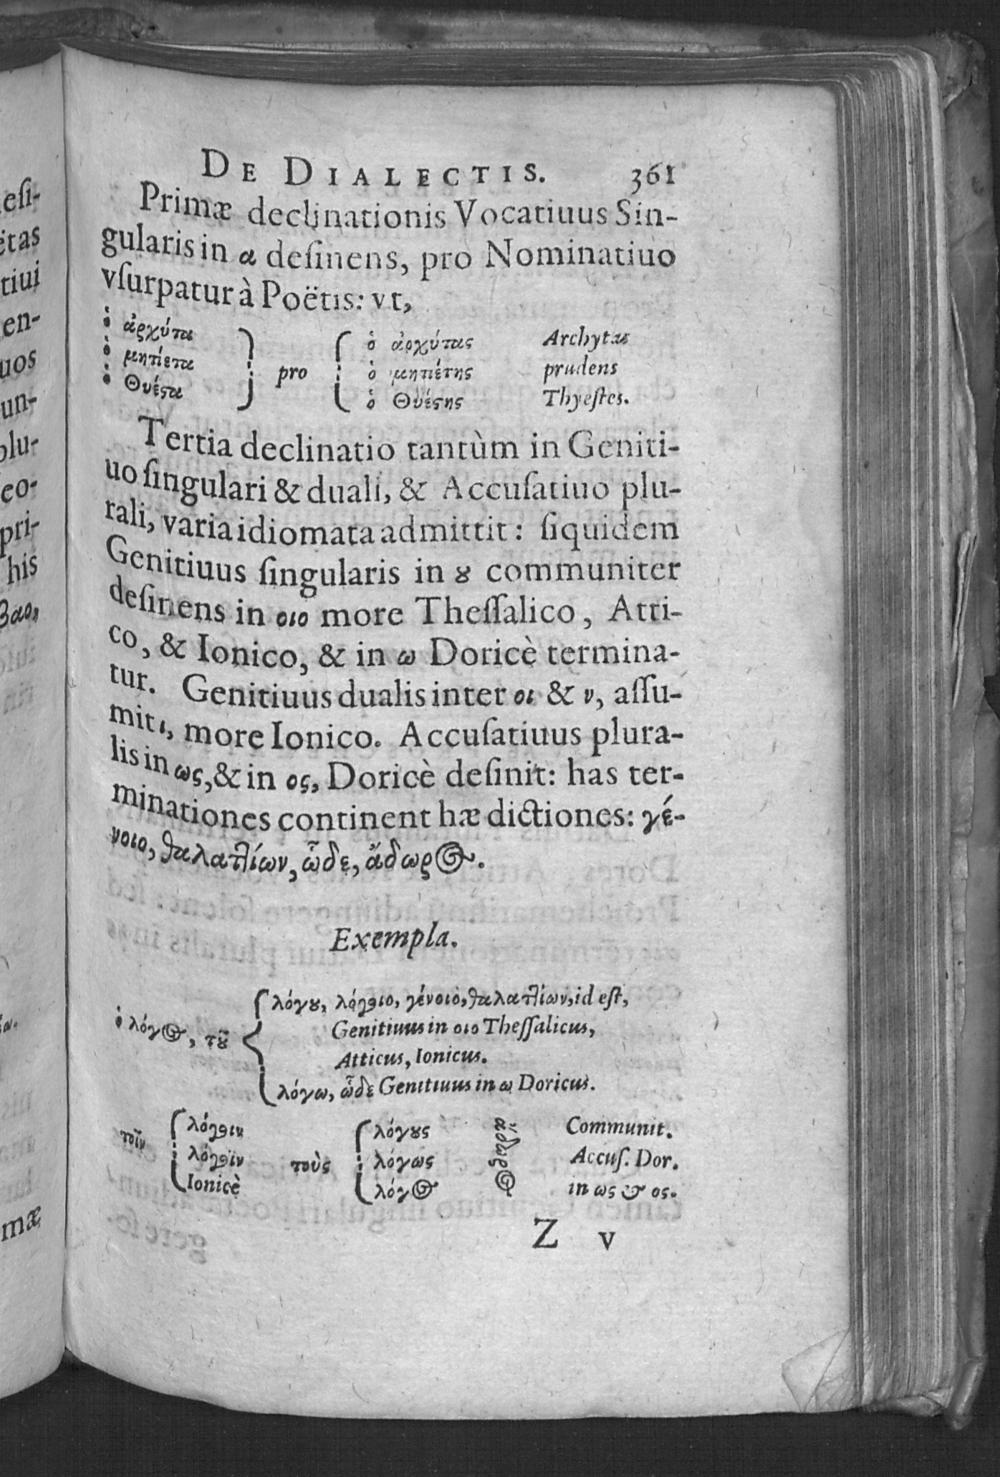 DE DIALECTIS. 361
Primæ declinationis Vocatiuus Sin-
gularis in α desinens, pro Nominatiuo
vsurpatur à Poëtis: vt,
ὁ ἀρχύτα
ὁ μητίετα
ὁ Θυέϛα
pro
ὁ ἀρχύτας Archytas
ὁ μητιέτης prudens
ὁ Θυέϛης Thyestes.
Tertia declinatio tantùm in Geniti-
uo singulari & duali, & Accusatiuo plu-
rali, varia idiomata admittit: siquidem
Genitiuus singularis in ȣ communiter
desinens in οιο more Thessalico, Atti-
co, & Ionico, & in ω Doricè termina-
tur. Genitiuus dualis inter οι & ν, assu-
mit ι, more Ionico. Accusatiuus plura-
lis in ως, & in ος, Doricè desinit: has ter-
minationes continent hæ dictiones: γέ-
νοιο, θαλαττίων, ὧδε, ἄδωρος.
Exempla.
ὁ λόγος, τȣ͂
λόγȣ, λόγοιο, γένοιο, θαλαττίων, id est,
Genitiuus in οιο Thessalicus,
Atticus, Ionicus.
λόγω, ὧδε Genitiuus in ω Doricus.
τοῖν
λόγοιν
λόγοϊν
Ionicè
τοὺς
λόγȣς
λόγως
λόγος
ἄδωρος
Communit.
Accus. Dor.
in ως & ος.
Z v
esi-
ëtas
tiui
en-
uos
un-
plu-
eo-
pri-
his
mæ